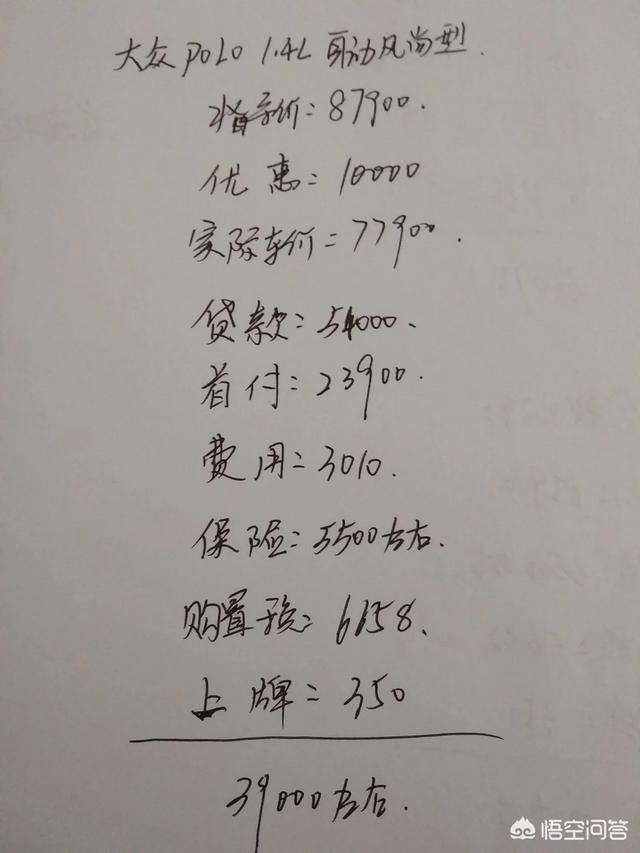 大众 POLO 1.4L 自动风尚型.
指导价: 87900.
优惠: 10000
实际车价= 77900.
贷款: 54000.
首付: 23900.
费用= 3010.
保险: 5500左右.
购置税: 6658.
上牌= 350
39000左右.
悟空问答